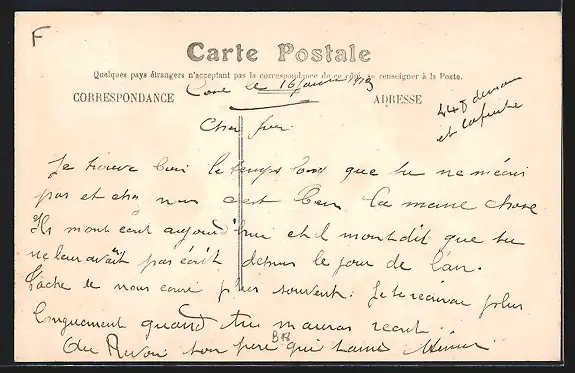 F
Carte Postale
Quelques pays étrangers n'acceptant pas la correspondance de ce côté, se renseigner à la Poste.
CORRESPONDANCE
le 16 1913
ADRESSE
448
et
Cher
Je trouve bien le temps long que tu ne mécris
pas et che nous cest bien la maime chose
Ils mont écrit aujourd'hui et il mont dit que tu
ne leur avait pas écrit depuis le jour de l'an.
Tache de nous écrire plus souvent. Je técrirai plus
longuement quand tu mauras
Au Revoir ton père qui taime